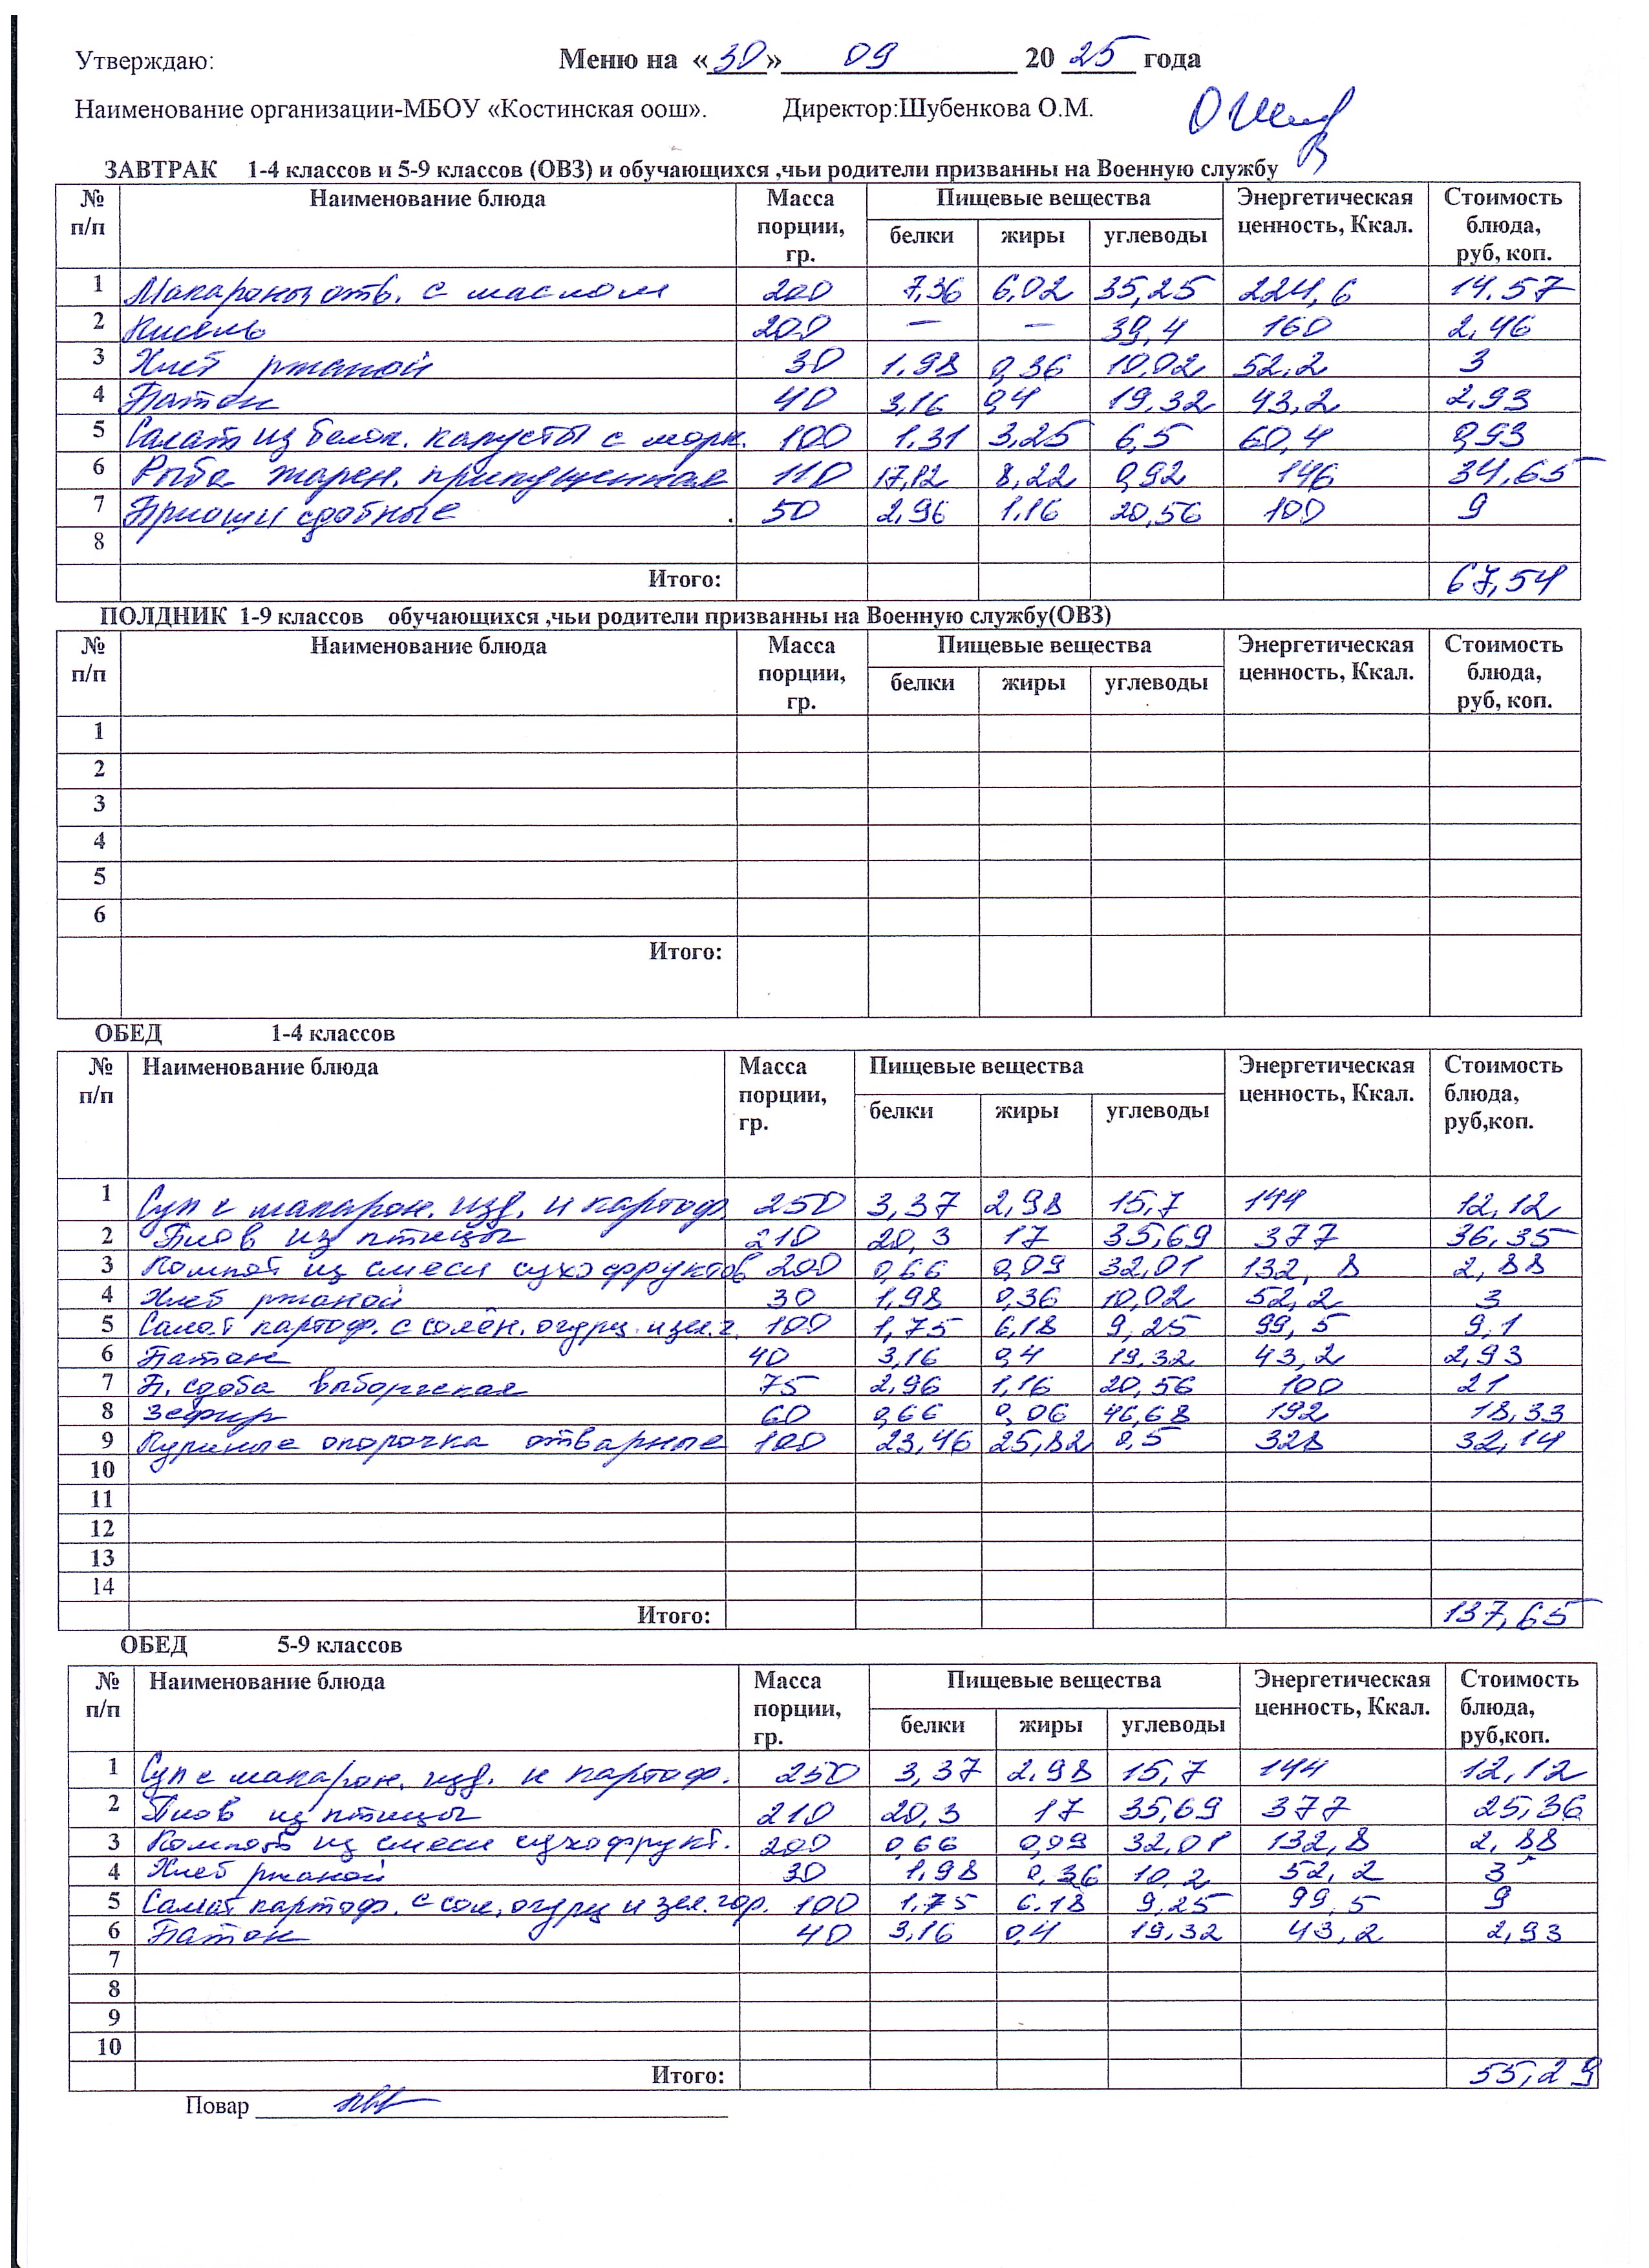 Утверждаю: Меню на «30» 09 2025 года
Наименование организации-МБОУ «Костинская оош». Директор:Шубенкова О.М.
ЗАВТРАК 1-4 классов и 5-9 классов (ОВЗ) и обучающихся ,чьи родители призванны на Военную службу
№ п/п Наименование блюда Масса порции, гр. Пищевые вещества Энергетическая ценность, Ккал. Стоимость блюда, руб, коп.
белки жиры углеводы
1 Макароны отв. с маслом 200 7,36 6,02 35,25 224,6 14.57
2 Кисель 200 – – 39,4 160 2,46
3 Хлеб ржаной 30 1,98 0,36 10,02 52,2 3
4 Батон 40 3,16 0,4 19,32 43,2 2,93
5 Салат из белок. капусты с морк. 100 1.31 3,25 6,5 60,4 0,93
6 Рыба жарен. припущенная 110 17,12 8,22 0,92 146 34,65
7 сдобные 50 2,96 1.16 20,56 100 9
8
Итого: 67,54
ПОЛДНИК 1-9 классов обучающихся ,чьи родители призванны на Военную службу(ОВЗ)
№ п/п Наименование блюда Масса порции, гр. Пищевые вещества Энергетическая ценность, Ккал. Стоимость блюда, руб, коп.
белки жиры углеводы
1
2
3
4
5
6
Итого:
ОБЕД 1-4 классов
№ п/п Наименование блюда Масса порции, гр. Пищевые вещества Энергетическая ценность, Ккал. Стоимость блюда, руб,коп.
белки жиры углеводы
1 Суп с макарон. изд. и картоф. 250 3,37 2,98 15,7 144 12,12
2 Плов из птицы 210 20,3 17 35,69 377 36,35
3 Компот из смеси сухофруктов 200 0,66 0,09 32,01 132,8 2,88
4 Хлеб ржаной 30 1,98 0,36 10,02 52,2 3
5 Салат картоф. с солён. огурц. и зел.г. 100 1,75 6,18 9,25 99,5 9,1
6 Батон 40 3,16 0,4 19,32 43,2 2,93
7 П. сдоба выборгская 75 2,96 1,16 20,56 100 21
8 Зефир 60 0,66 0,06 46,68 192 18,33
9 Куриные окорочка отварные 100 23,46 25,82 0,5 328 32,14
10
11
12
13
14
Итого: 137,65
ОБЕД 5-9 классов
№ п/п Наименование блюда Масса порции, гр. Пищевые вещества Энергетическая ценность, Ккал. Стоимость блюда, руб,коп.
белки жиры углеводы
1 Суп с макарон. изд. и картоф. 250 3,37 2,98 15,7 144 12,12
2 Плов из птицы 210 20,3 17 35,69 377 25,36
3 Компот из смеси сухофрукт. 200 0,66 0,09 32,01 132,8 2,88
4 Хлеб ржаной 30 1,98 0,36 10,2 52,2 3
5 Салат картоф. с сол. огурц и зел. гор. 100 1.75 6.18 9,25 99,5 9
6 Батон 40 3,16 0,4 19,32 43,2 2,93
7
8
9
10
Итого: 55,29
Повар